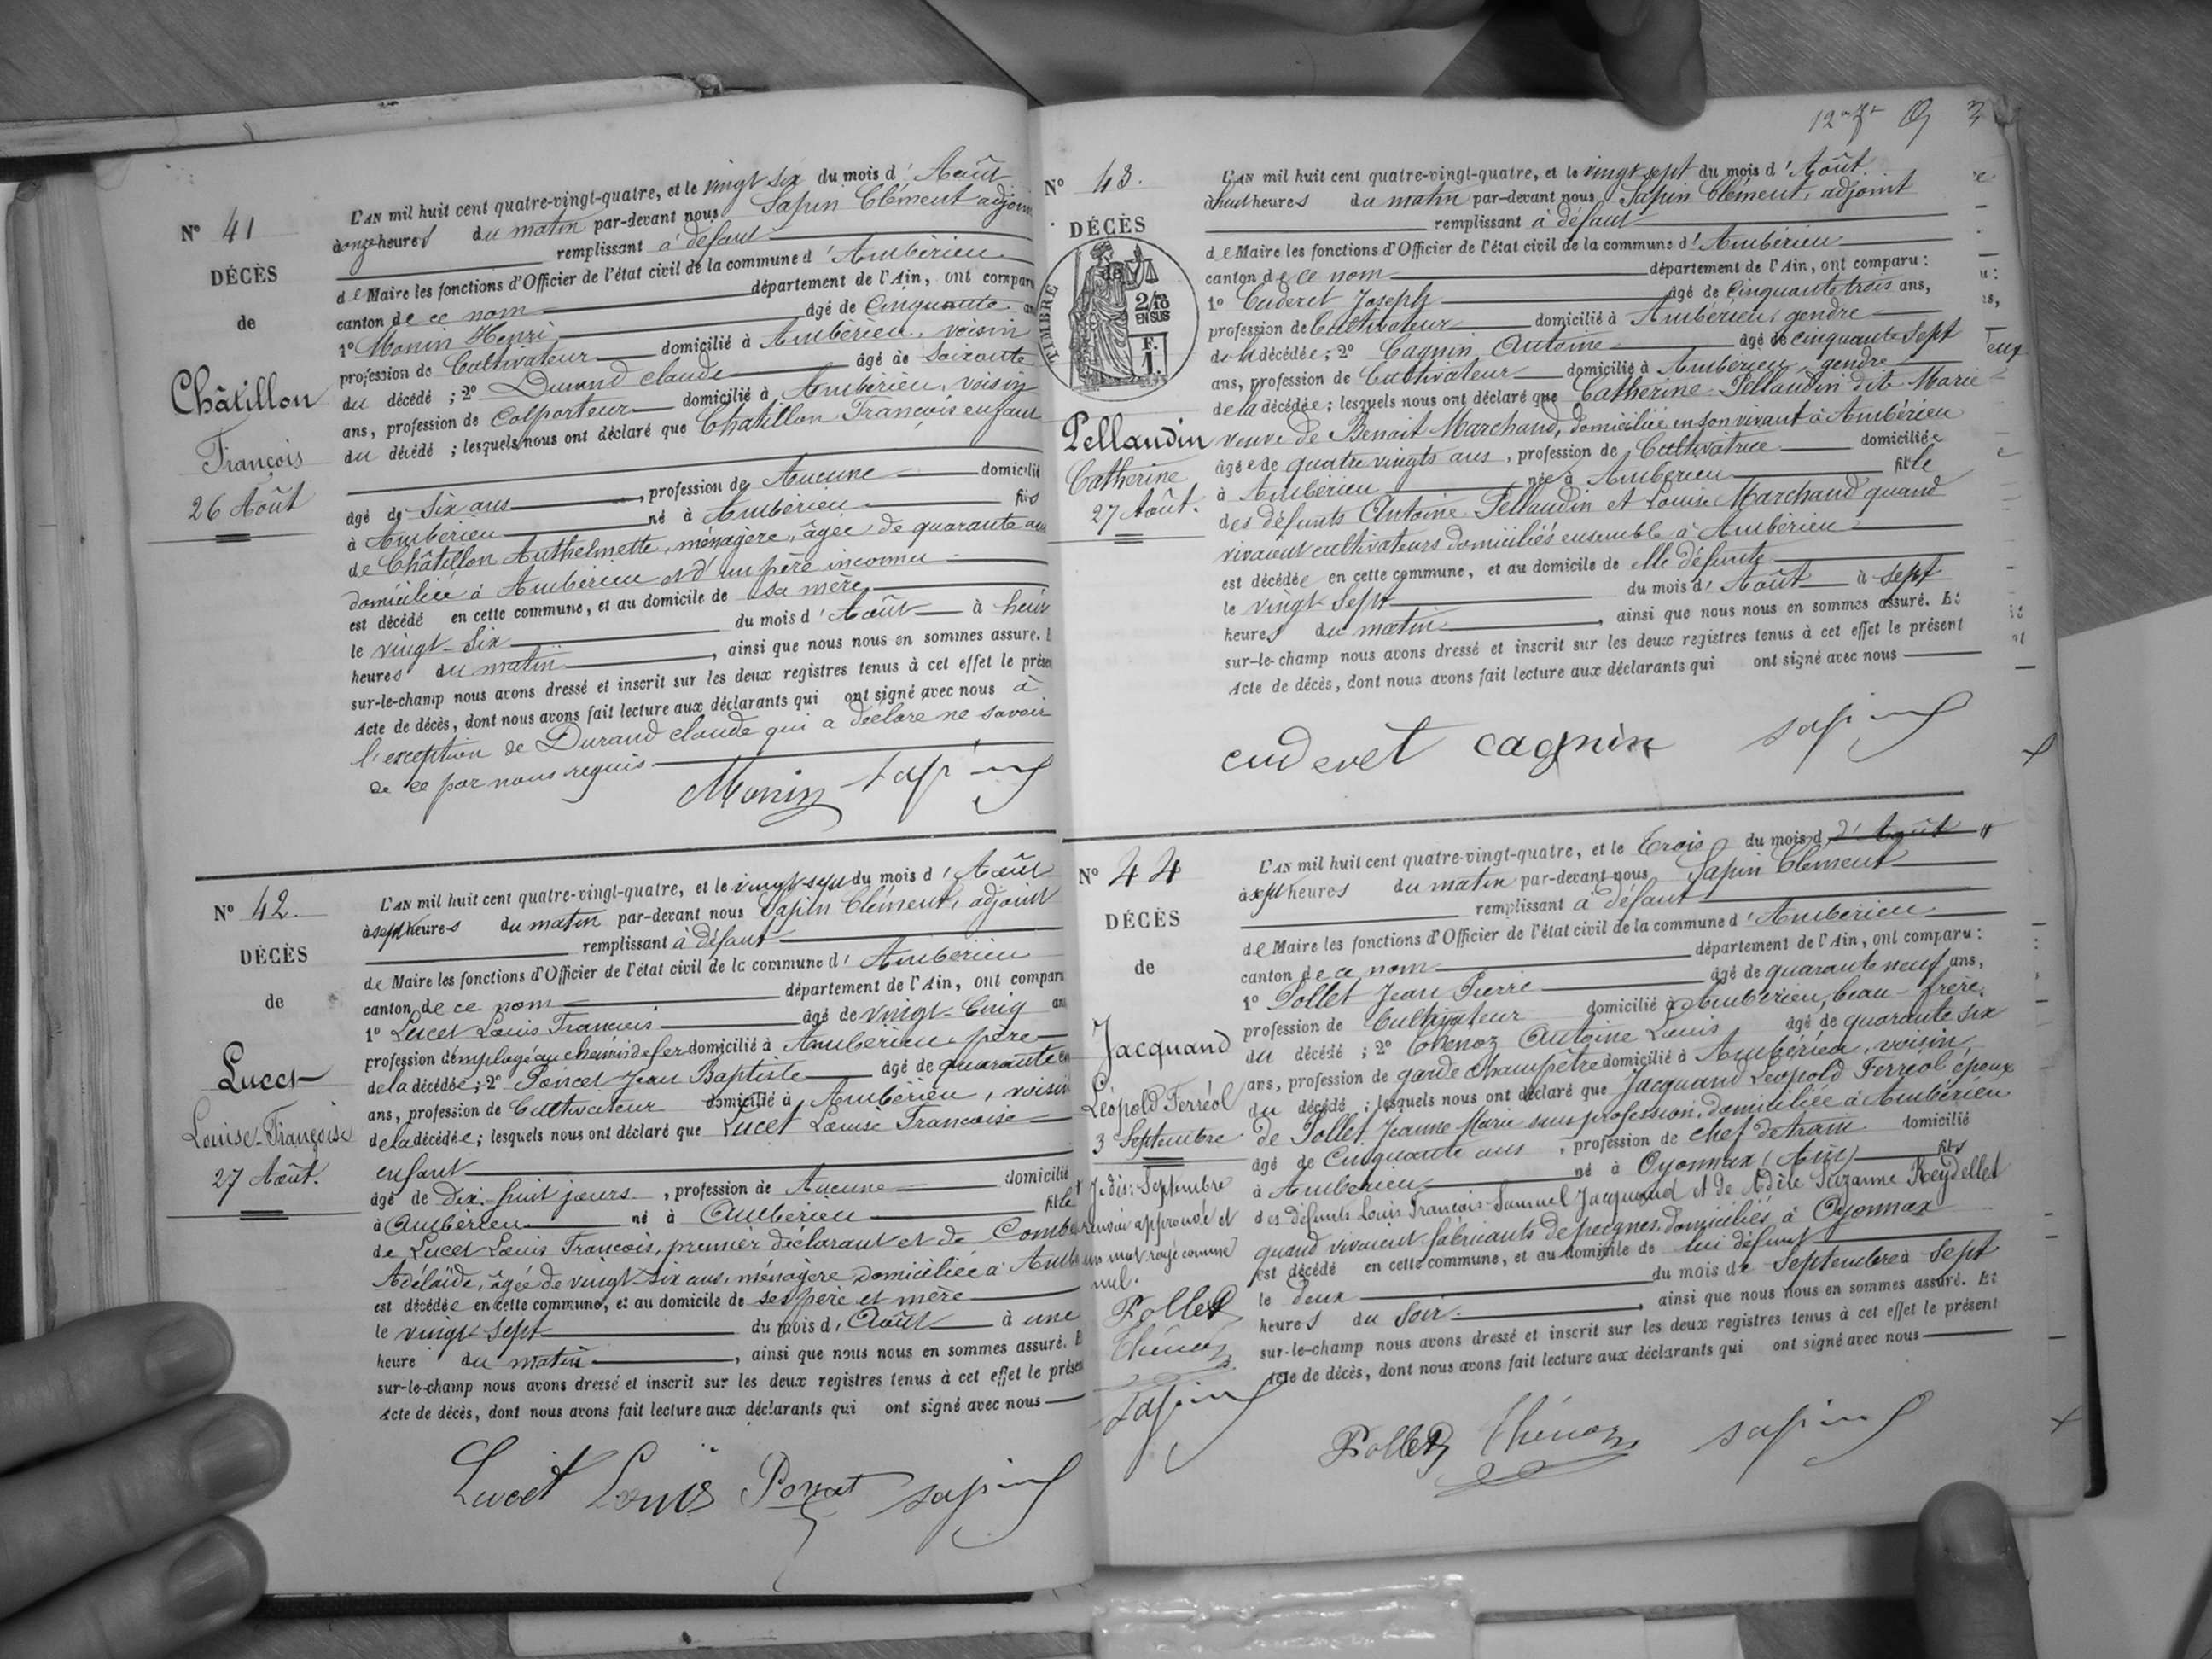 N° 41
DÉCÈS
de
Châtillon
François
26 Août
L'AN mil huit cent quatre-vingt-quatre, et le vingt six du mois d'Août
à onze heures du matin par-devant nous Sapin Clément adjoint
remplissant à défaut
de Maire les fonctions d'Officier de l'état civil de la commune d'Ambérieu
canton de ce nom département de l'Ain, ont compar
1° Monin Henri âgé de Cinquante an
profession de Cultivateur domicilié à Ambérieu, voisin
du décédé ; 2° Durand Claude âgé de soixante
ans, profession de Colporteur domicilié à Ambérieu, voisin
du décédé ; lesquels nous ont déclaré que Chatillon François enfant
âgé de Six ans, profession de Aucune domicilié
à Ambérieu né à Ambérieu fils
de Châtillon Anthelmette, ménagère, âgée de quarante an
domiciliée à Ambérieu et d'un père inconnu
est décédé en cette commune, et au domicile de sa mère
le vingt-six du mois d'Août à heu
heures du matin, ainsi que nous nous en sommes assuré. E
sur-le-champ nous avons dressé et inscrit sur les deux registres tenus à cet effet le présen
Acte de décès, dont nous avons fait lecture aux déclarants qui ont signé avec nous à
l'exception de Durand claude qui a déclaré ne savoir
de ce par nous requis
Monin Sapin
N° 42.
DÉCÈS
de
Lucet
Louise-Françoise
27 Août.
L'AN mil huit cent quatre-vingt-quatre, et le vingt-sept du mois d'Août
à sept heures du matin par-devant nous Sapin Clément, adjoint
remplissant à défaut
de Maire les fonctions d'Officier de l'état civil de la commune d'Ambérieu
canton de ce nom département de l'Ain, ont compar
1° Lucet Louis François âgé de vingt-Cinq an
profession d'employé au chemin de fer domicilié à Ambérieu, père
de la décédée ; 2° Poncet Jean Baptiste âgé de quarante
ans, profession de Cultivateur domicilié à Ambérieu, voisin
de la décédée ; lesquels nous ont déclaré que Lucet Louise Françoise
enfant
âgé de Dix-huit jours, profession de Aucune domicilié
à Ambérieu né à Ambérieu fille
de Lucet Louis François, premier déclarant et de Combe
Adélaïde, âgée de vingt-six ans, ménagère domiciliée à Amb
est décédée en cette commune, et au domicile de ses père et mère
le vingt sept du mois d'Août à une
heure du matin, ainsi que nous nous en sommes assuré. E
sur-le-champ nous avons dressé et inscrit sur les deux registres tenus à cet effet le présen
Acte de décès, dont nous avons fait lecture aux déclarants qui ont signé avec nous
Lucet Louis Poncet Sapin
N° 43.
DÉCÈS
de
TIMBRE
2/10
EN SUS
F.
1.
Pellaudin
Catherine
27 Août.
L'AN mil huit cent quatre-vingt-quatre, et le vingt sept du mois d'Août
à huit heures du matin par-devant nous Sapin Clément, adjoint
remplissant à défaut
de Maire les fonctions d'Officier de l'état civil de la commune d'Ambérieu
canton de ce nom département de l'Ain, ont comparu :
1° Cuderet Joseph âgé de Cinquante trois ans,
profession de Cultivateur domicilié à Ambérieu, gendre
de la décédée ; 2° Cagnin Antoine âgé de cinquante sept
ans, profession de Cultivateur domicilié à Ambérieu, gendre
de la décédée ; lesquels nous ont déclaré que Catherine Pellaudin dite Marie
veuve de Benoit Marchand, domiciliée en son vivant à Ambérieu
âgée de quatre vingts ans, profession de Cultivatrice domiciliée
à Ambérieu née à Ambérieu fille
des défunts Antoine Pellaudin et Louise Marchand quand
vivaient cultivateurs domiciliés ensemble à Ambérieu
est décédée en cette commune, et au domicile de elle défunte
le vingt-Sept du mois d'Août à sept
heures du matin, ainsi que nous nous en sommes assuré. Et
sur-le-champ nous avons dressé et inscrit sur les deux registres tenus à cet effet le présent
Acte de décès, dont nous avons fait lecture aux déclarants qui ont signé avec nous
cuderet cagnin sapin
N° 44
DÉCÈS
de
Jacquand
Léopold Ferréol
3 Septembre
Je dis: Septembre
renvoi approuvé et
un mot rayé comme
nul.
Pollet
Thénoz
Sapin
L'AN mil huit cent quatre-vingt-quatre, et le Trois du mois d d'Août
à sept heures du matin par-devant nous Sapin Clément
remplissant à défaut
de Maire les fonctions d'Officier de l'état civil de la commune d'Ambérieu
canton de ce nom département de l'Ain, ont comparu :
1° Pollet Jean Pierre âgé de quarante neuf ans,
profession de Cultivateur domicilié à Ambérieu, beau-frère
du décédé ; 2° Thénoz Antoine Louis âgé de quarante six
ans, profession de garde champêtre domicilié à Ambérieu, voisin
du décédé ; lesquels nous ont déclaré que Jacquand Léopold Ferréol époux
de Pollet Jeanne Marie sans profession, domiciliée à Ambérieu
âgé de Cinquante ans, profession de chef de train domicilié
à Ambérieu né à Oyonnax (Ain) fils
des défunts Louis François Samuel Jacquand et de Adèle Suzanne Reydellet
quand vivaient fabricants de peignes, domiciliés à Oyonnax
est décédé en cette commune, et au domicile de lui défunt
le deux du mois de Septembre à Sept
heures du Soir, ainsi que nous nous en sommes assuré. Et
sur-le-champ nous avons dressé et inscrit sur les deux registres tenus à cet effet le présent
Acte de décès, dont nous avons fait lecture aux déclarants qui ont signé avec nous
Pollet Thénoz sapin